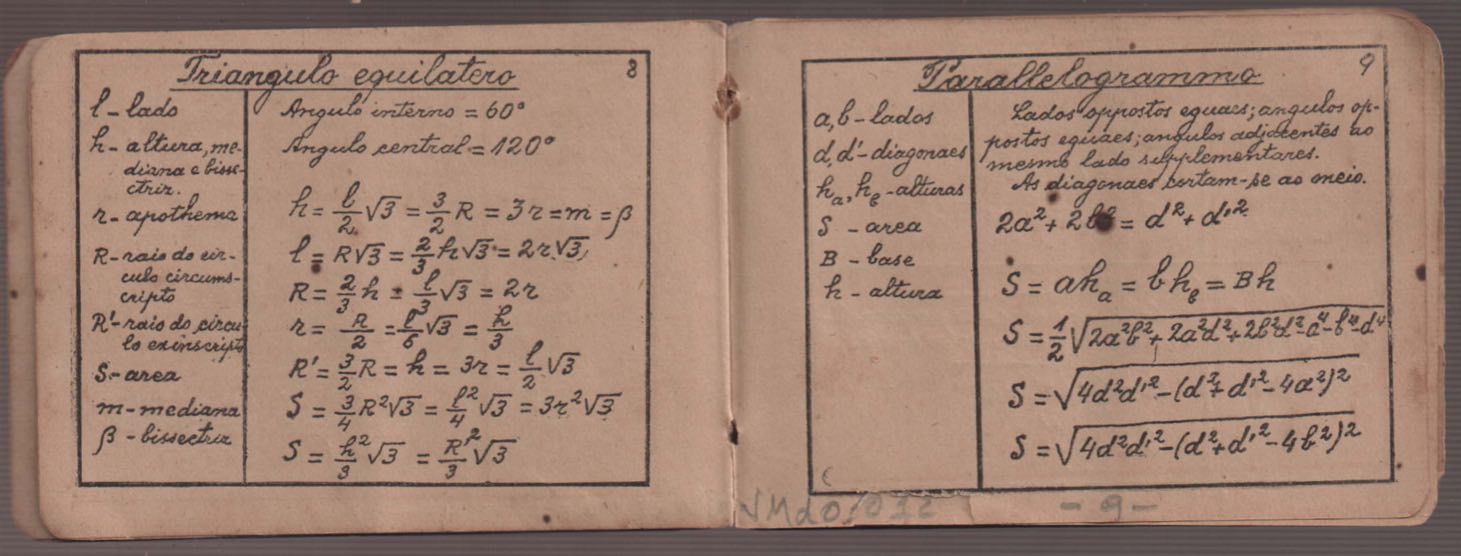 Triangulo equilatero 8
l - lado
h - altura, me-
diana e bisse-
ctriz.
r - apothema
R - raio do cir-
culo circums-
cripto
R' - raio do circu-
lo exinscripto
S - area
m - mediana
β - bissectriz
Angulo interno = 60°
Angulo central = 120°
h = l/2 √3 = 3/2 R = 3r = m = β
l = R√3 = 2/3 h√3 = 2r√3
R = 2/3 h = l/3 √3 = 2r
r = R/2 = l/6 √3 = h/3
R' = 3/2 R = h = 3r = l/2 √3
S = 3/4 R²√3 = l²/4 √3 = 3r²√3
S = h²/3 √3 = R'²/3 √3
Parallelogrammo 9
a, b - lados
d, d' - diagonaes
hₐ, h_b - alturas
S - area
B - base
h - altura
Lados oppostos eguaes; angulos op-
postos eguaes; angulos adjacentes ao
mesmo lado supplementares.
As diagonaes cortam-se ao meio.
2a² + 2b² = d² + d'²
S = ahₐ = bh_b = Bh
S = 1/2 √(2a²b² + 2a²d² + 2b²d² - a⁴ - b⁴ - d⁴
S = √4d²d'² - (d² + d'² - 4a²)²
S = √4d²d'² - (d² + d'² - 4b²)²
- 9 -